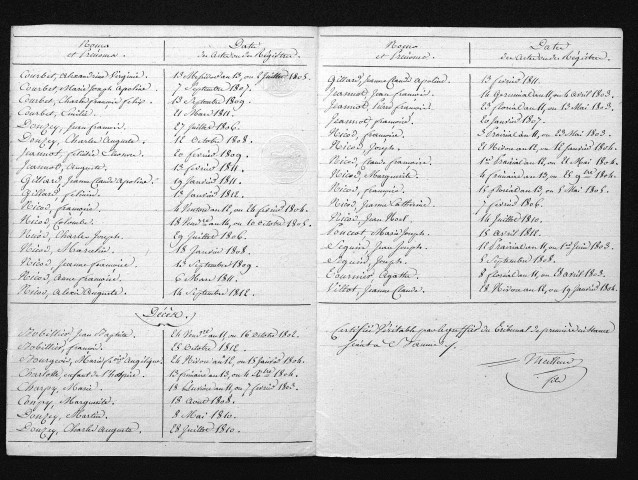 Noms et Prénoms.
Date des actes ou du Registre.
Courbet, Alexandrine Virginie. 13 Messidor an 13, ou 2 Juillet 1805.
Courbet, Marie Joseph Apoline. 7 Septembre 1807.
Courbet, Charles François Félix. 13 Septembre 1809.
Courbet, 21 Mars 1811.
Douzey, Jean François. 27 Juillet 1806.
Douzey, Charles Auguste. 12 Octobre 1808.
Jeannot, 20 février 1809.
Jeannot, Auguste. 13 février 1811.
Gillard, Jeanne Claude Apoline. 29 Janvier 1811.
Gillard, 13 Janvier 1812.
Nicod, françois. 4 Ventose an 12, ou 24 février 1804.
Nicod, Colombe. 18 Vendre. an 14, ou 10 Octobre 1805.
Nicod, Charles Joseph. 29 Juillet 1806.
Nicod, 18 Janvier 1808.
Nicod, Jeanne françoise. 12 Septembre 1809.
Nicod, Anne françoise. 6 Mars 1811.
Nicod, Alexis Auguste. 14 Septembre 1812.
Décès.
Jean Baptiste. 24 Vendre. an 11, ou 16 Octobre 1802.
françois. 23 Octobre 1812.
Bourgeois, Marie Angélique. 24 Nivose an 12, ou 15 Janvier 1804.
Charlotte, enfant de l'hospice. 13 frimaire an 13, ou 4 Xbre 1804.
Charpy, Marie. 18 Pluviose an 11, ou 7 février 1803.
Marguerite. 18 Aout 1808.
Douzey, Martin. 8 Mai 1810.
Douzey, Charles Auguste. 28 Juillet 1810.
Noms et Prénoms.
Date des actes ou du Registre.
Gillard, Jeanne Claude Apoline. 13 février 1811.
Jeannot, Jean François. 14 Germinal an 11, ou 4 Avril 1803.
Jeannot, Pierre François. 23 floréal an 11, ou 13 Mai 1803.
Jeannot, françoise. 20 Janvier 1807.
Nicod, françoise. 3 Prairial an 11, ou 23 Mai 1803.
Nicod, Joseph. 21 Nivose an 12, ou 12 Janvier 1804.
Nicod, Claude françoise. 1er Prairial an 12, ou 21 Mai 1804.
Nicod, Marguerite. 4 frimaire an 13, ou 25 9bre 1804.
Nicod, françoise. 15 floréal an 13, ou 5 Mai 1805.
Nicod, Jeanne Catherine. 7 février 1806.
Nicod, Jean Noel. 14 Juillet 1810.
Poncot, Marie Joseph. 18 Avril 1811.
Seguin, Jean Joseph. 12 Prairial an 11, ou 1er Juin 1803.
Seguin, Joseph. 8 Septembre 1808.
Tournier, Agathe. 8 floréal an 11, ou 28 avril 1803.
Villot, Jeanne Claude. 28 Nivose an 12, ou 19 Janvier 1804.
Certifié Véritable par le greffier du tribunal de première instance
séant à